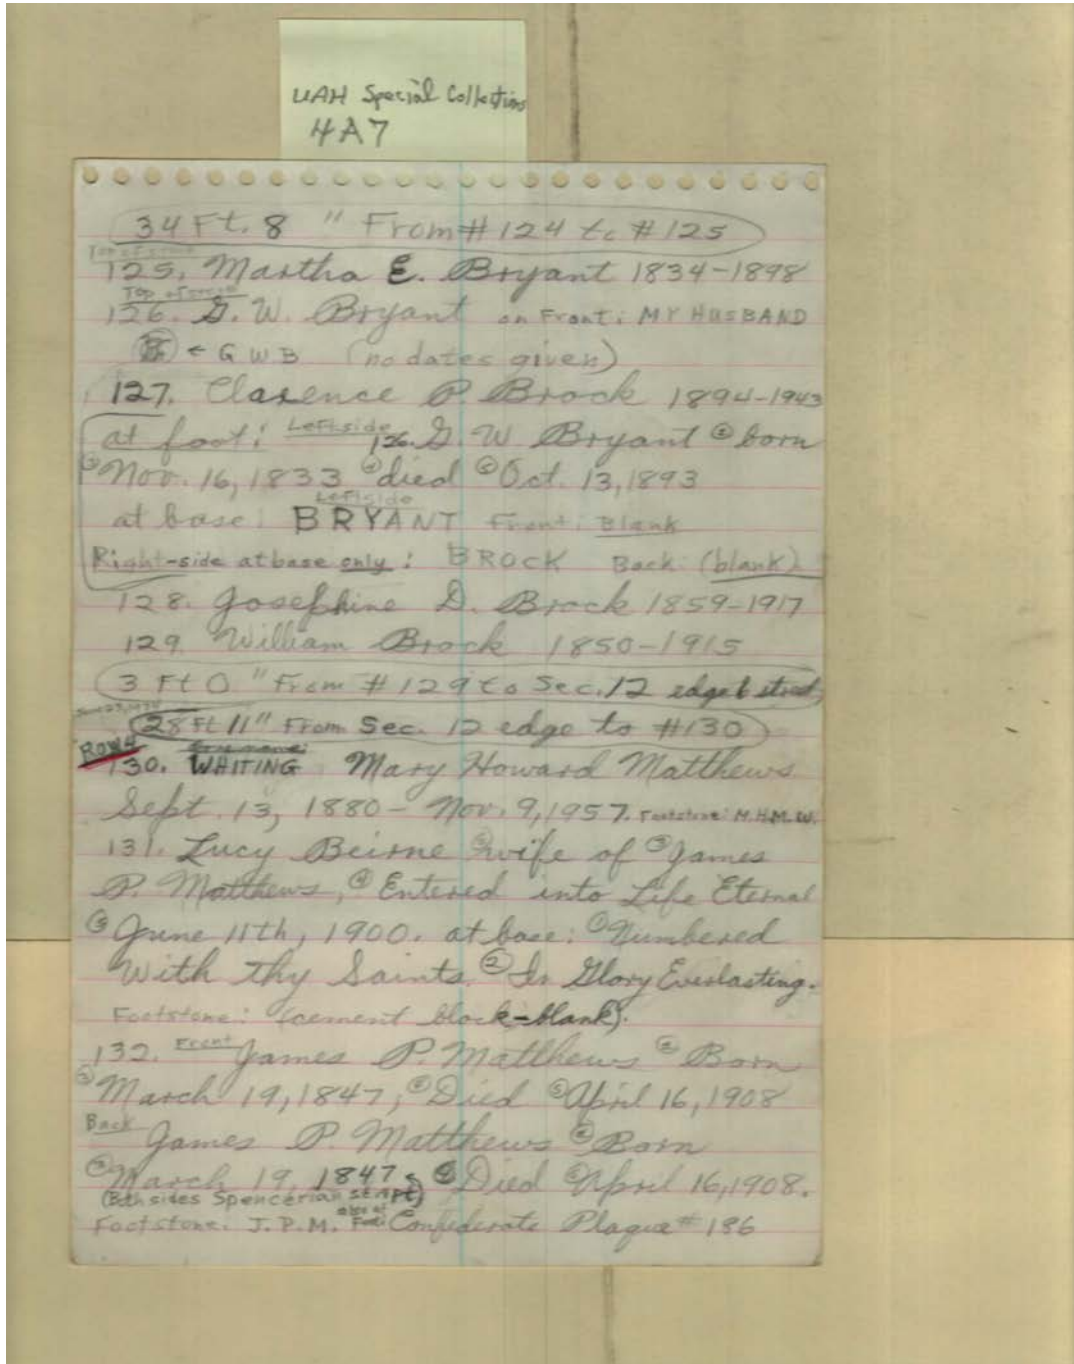 UAH Special Collections
4A7
34 Ft. 8 " From # 124 to # 125
Top of stone
125. Martha E. Bryant 1834-1898
Top of stone
126. G. W. Bryant on Front: MY HUSBAND
← G W B (no dates given)
127. Clarence P. Brock 1894-1943
at foot: Left side 126. G W Bryant ② born
③ Nov. 16, 1833 ④ died ⑤ Oct. 13, 1893
Left side
at base: BRYANT Front: Blank
Right-side at base only: BROCK Back: (blank)
128. Josephine D. Brock 1859-1917
129. William Brock 1850-1915
3 Ft 0 " From # 129 to Sec. 12 edge & street
28 Ft 11" From Sec. 12 edge to #130
Row 4
130. WHITING Mary Howard Matthews
Sept. 13, 1880 - Nov. 9, 1957. Footstone: M.H.M.W.
131. Lucy Beirne ② wife of ③ James
P. Matthews, ④ Entered into Life Eternal
⑤ June 11th, 1900. at base: ① Numbered
With thy Saints. ② In Glory Everlasting.
Footstone: (cement block-blank).
132. Front James P. Matthews ② Born
③ March 19, 1847, ④ Died ⑤ April 16, 1908
Back James P. Matthews ② Born
③ March 19, 1847, ④ Died ⑤ April 16, 1908.
(Both sides Spencerian script)
Footstone: J.P.M. also at Foot: Confederate Plaque # 186